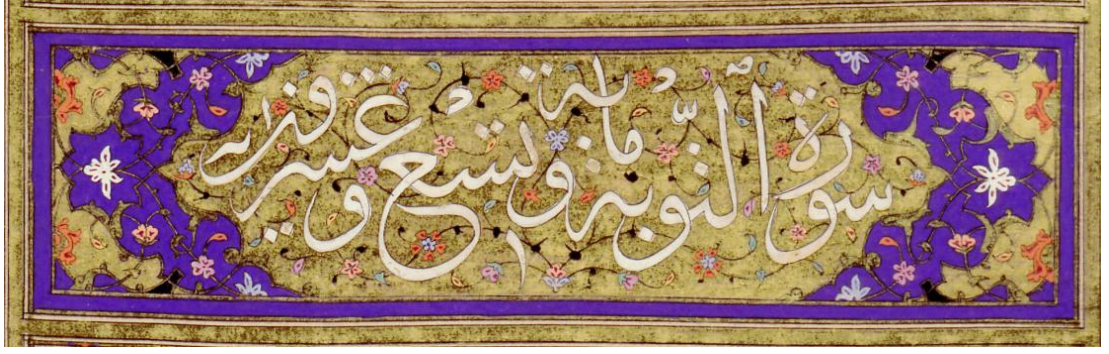 سورة التّوبة مائة وتسع وعشرون آية